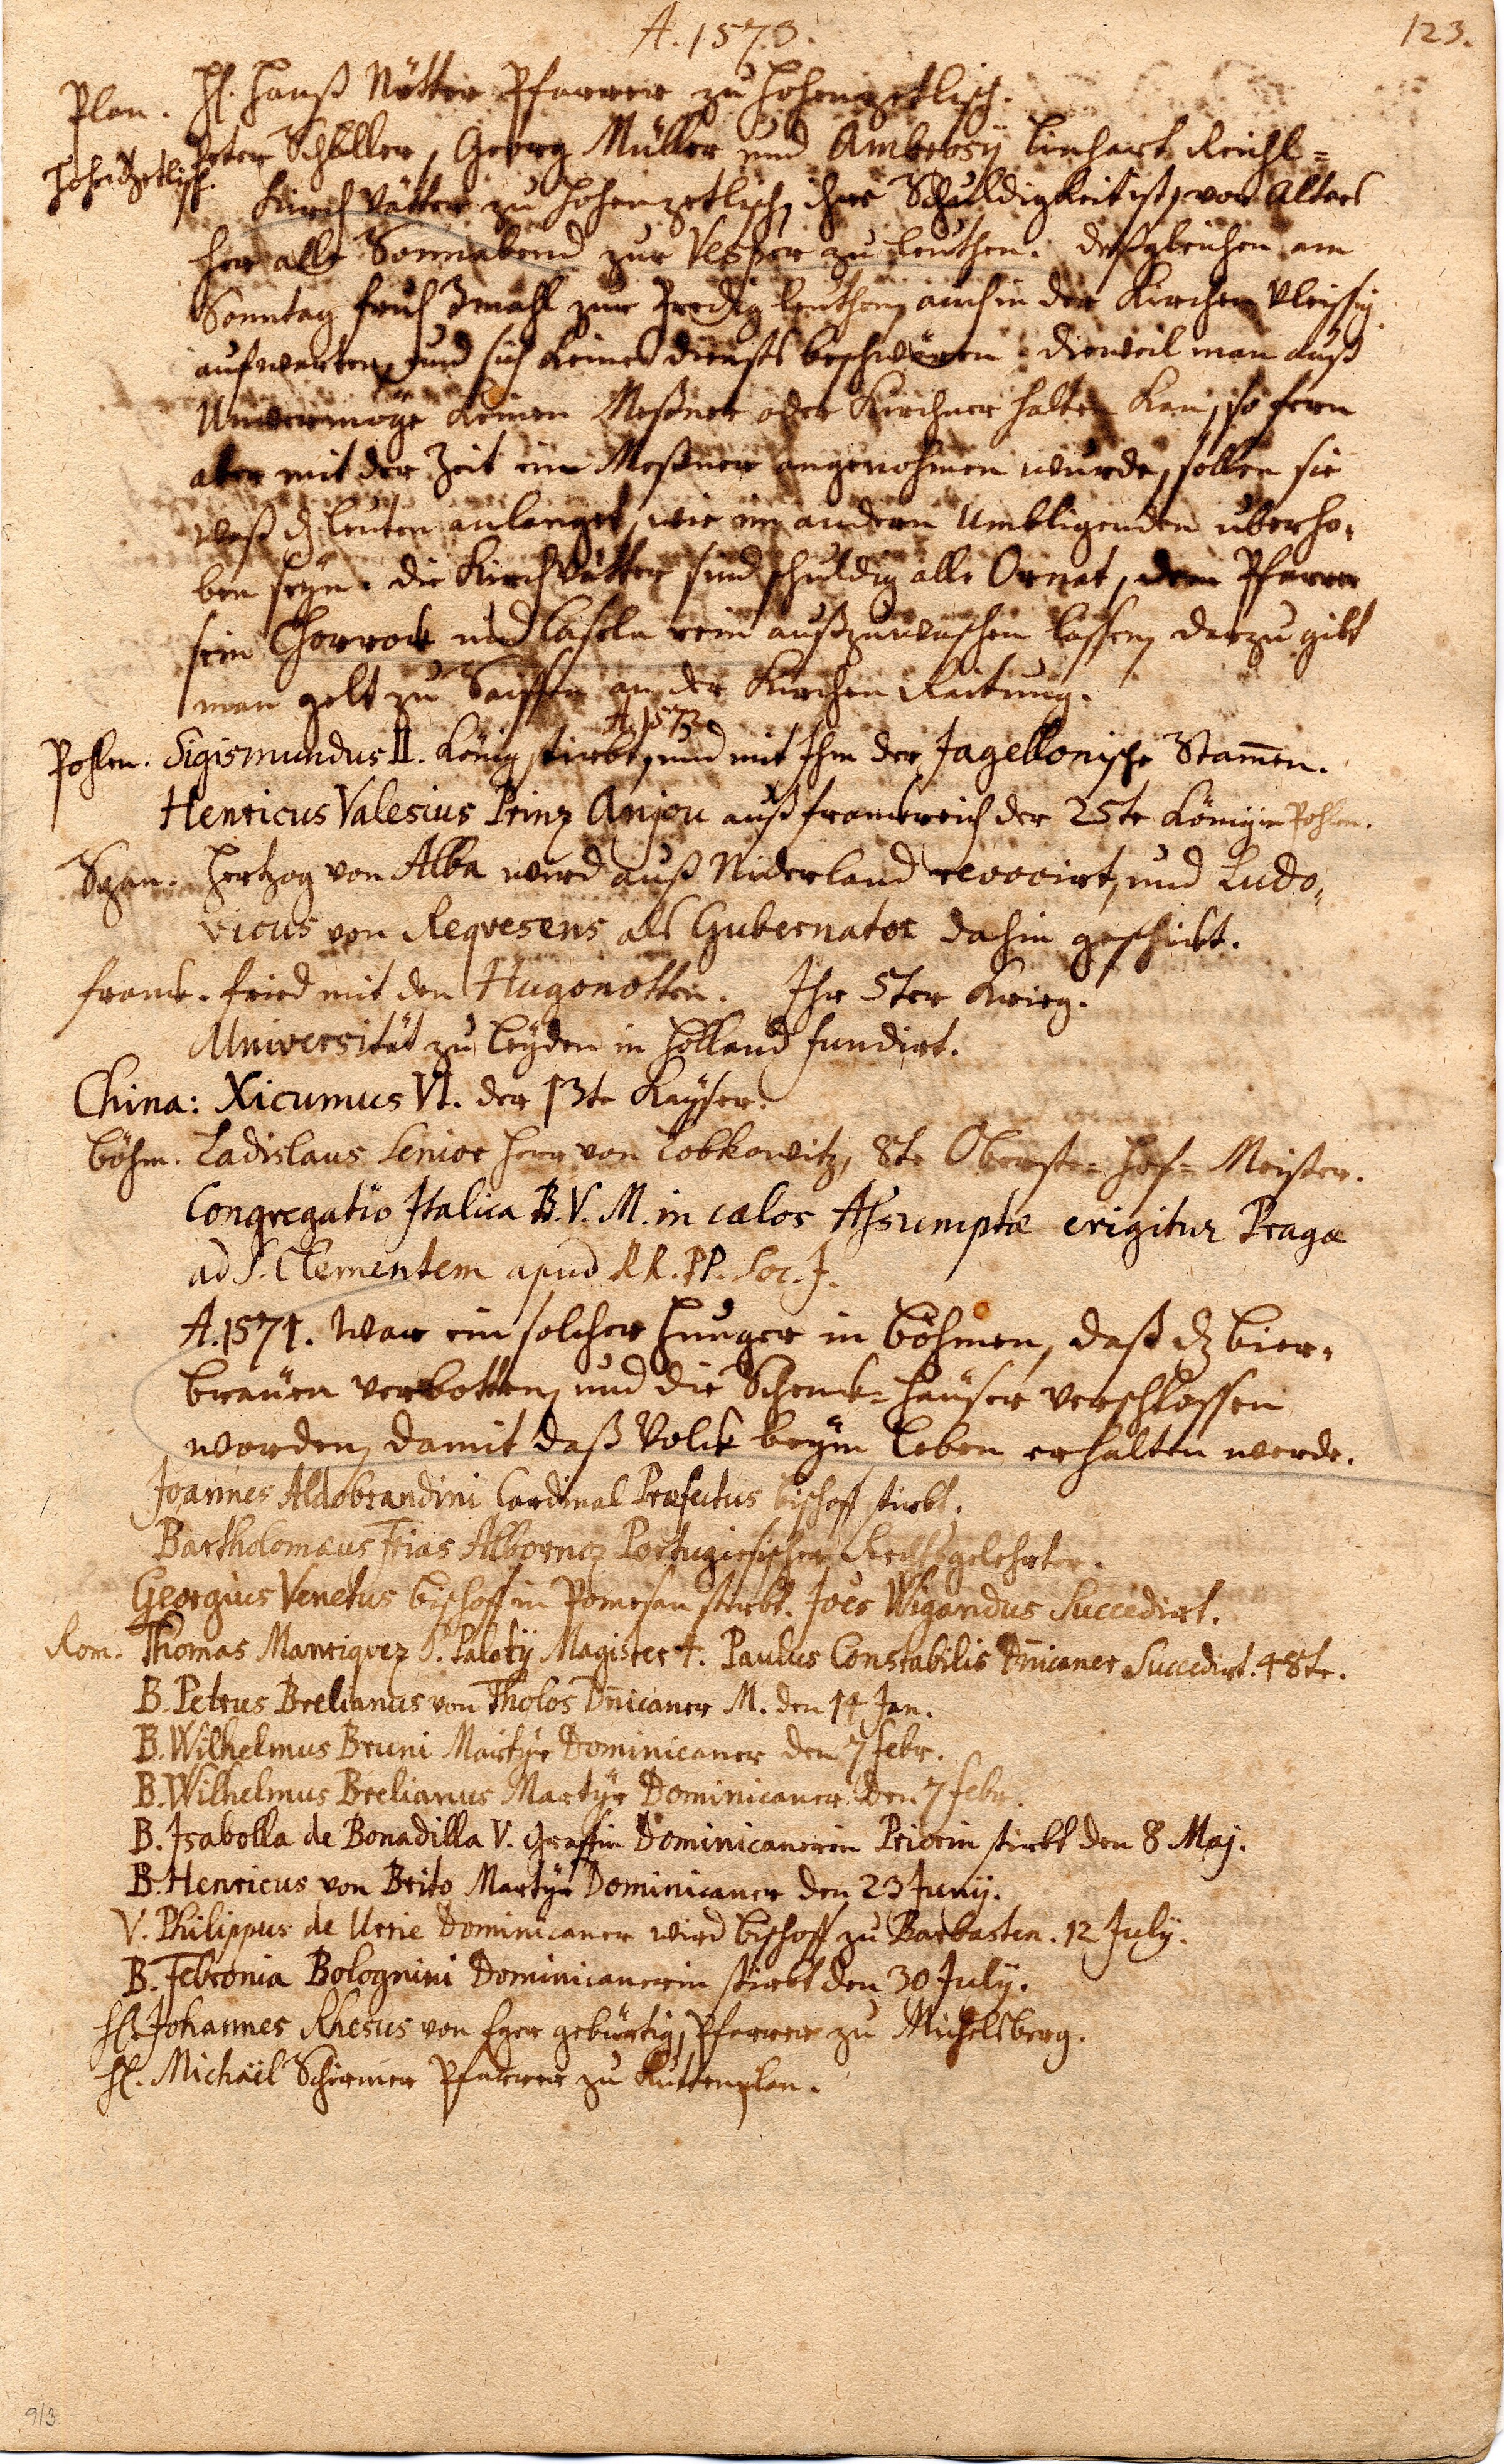 A. 1573.
123.
Plan. H. Hanß Nötter Pfarrer zu Hohenzetlisch.
Hohenzetlisch. Peter Schiller, Georg Müller und Ambrosy Linhart Reichl=
Kirch Vätter zu Hohenzetlisch, ihre Schuldigkeit ist, von Alters
her alle Sonnabend zur Vesper zu leuthen. deßgleichen am
Sonntag fruh 3mahl zur Predig leuthen, auch in der Kirchen vleissig
aufwarten, und sich keines diensts beschwären. dieweil man auß
Unvermöge keinen Meßner oder Kirchner halten kan, so fern
aber mit der Zeit ein Meßner angenohmen wurde, sollen sie
waß dz leuten anlanget, wie im andern Umbligenden uberho-
ben seyn. die Kirch Vätter sind schuldig alle Ornat, dem Pfarrer
sein Chorrock und Caseln rein außzuwaschen lassen, darzu gibt
man gelt zu Saiffen an der Kirchen Raitung.
A. 1573
Pohlen. Sigismundus II. König stirbt, und mit Ihm der Jagellonische Stam̄en.
Henricus Valesius Prinz Anjou auß franckreich der 25te König in Pohlen.
Span. Hertzog von Alba wird auß Niderland revocirt, und Ludo-
vicus von Reqvesens als Gubernator dahin geschickt.
franck. fried mit den Hugonotten. Ihr 5ter Krieg.
Universität zu Leÿden in Holland fundirt.
China: Xicumus VI. der 13te Kaÿser.
Böhm. Ladislaus Senior Herr von Lobkowitz, 8te Oberste=Hof=Meister.
Congregatio Italica B. V. M. in cælos Assumptæ erigitur Pragæ
ad S. Clementem apud RR. PP. Soc. J.
A. 1574. War ein solcher Hunger in Böhmen, daß dz bier-
bräuen verbotten, und die Schenck=häuser verschlossen
worden, damit daß Volck beÿm leben erhalten werde.
Joannes Aldobrandini Cardinal Præfectus bischoff stirbt.
Bartholomæus Frias Albornoz Portugiesischer Rechtsgelehrter.
Georgius Venetus bischoff in Pomesan stirbt. Joēs Wigandus Succedirt.
Rom. Thomas Manriqvez S. Palatÿ Magister †. Paulus Constabilis Dn̄icaner Succedirt. 48te.
B. Petrus Brelianus von Tholos Dn̄icaner M. den 14 Jan.
B. Wilhelmus Bruni Martÿr Dominicaner den 7 febr.
B. Wilhelmus Brelianus Martÿr Dominicaner den 7 febr.
B. Isabolla de Bonadilla V. Graffin Dominicanerin Priorin stirbt den 8 Maj.
B. Henricus von Brito Martÿr Dominicaner den 23 Junÿ.
V. Philippus de Urrie Dominicaner wird bischoff zu Barbasten. 12 Julÿ.
B. Febronia Bolognini Dominicanerin stirbt den 30 Julÿ.
H. Johannes Rhesus von Eger gebürtig, Pfarrer zu Michelsberg.
H. Michaël Schirmer Pfarrer zu Kuttenplan.
913